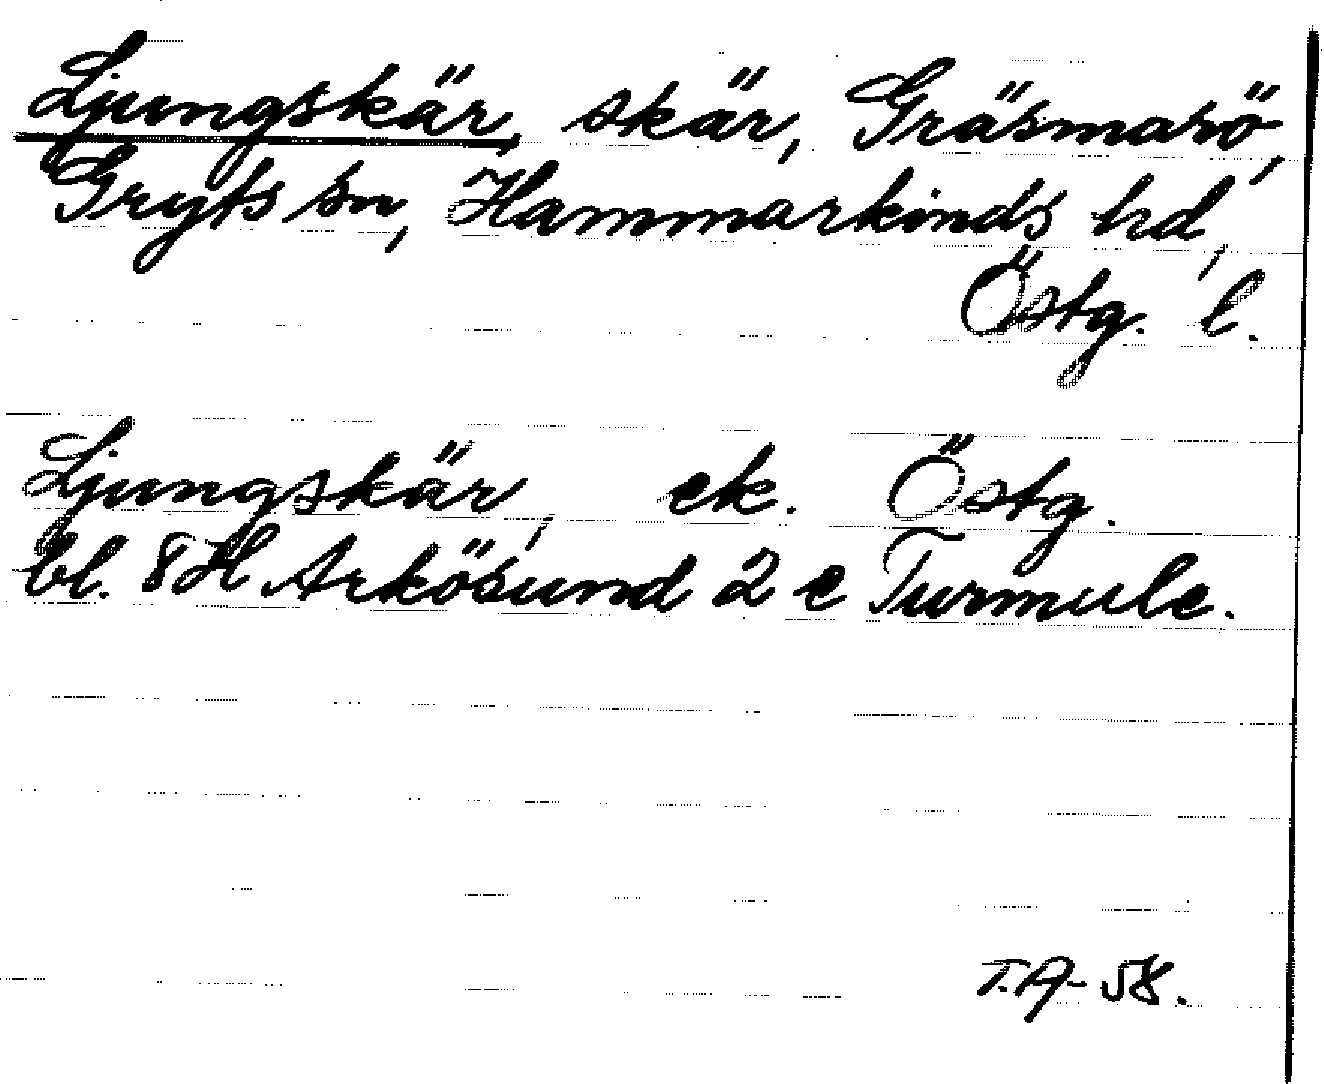 Ljungskär, skär, Gräsmarö,
Gryts sn, Hammarkinds hd,
Östg. l.
Ljungskär, ek. Östg.
bl. 8H Arkösund 2 e Turmule.
T.A-58.